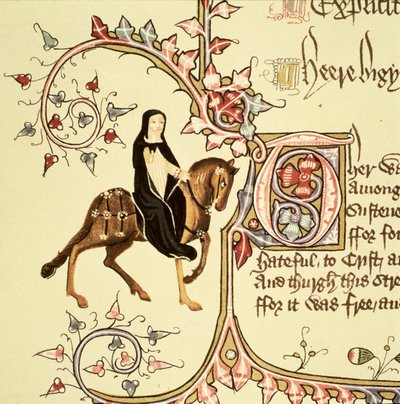 Explicit
Heere bigy
Ther wa
Among
Sustene
ffor fo
Hateful, to Crist, a
And thurgh this stre
ffor it was free, an